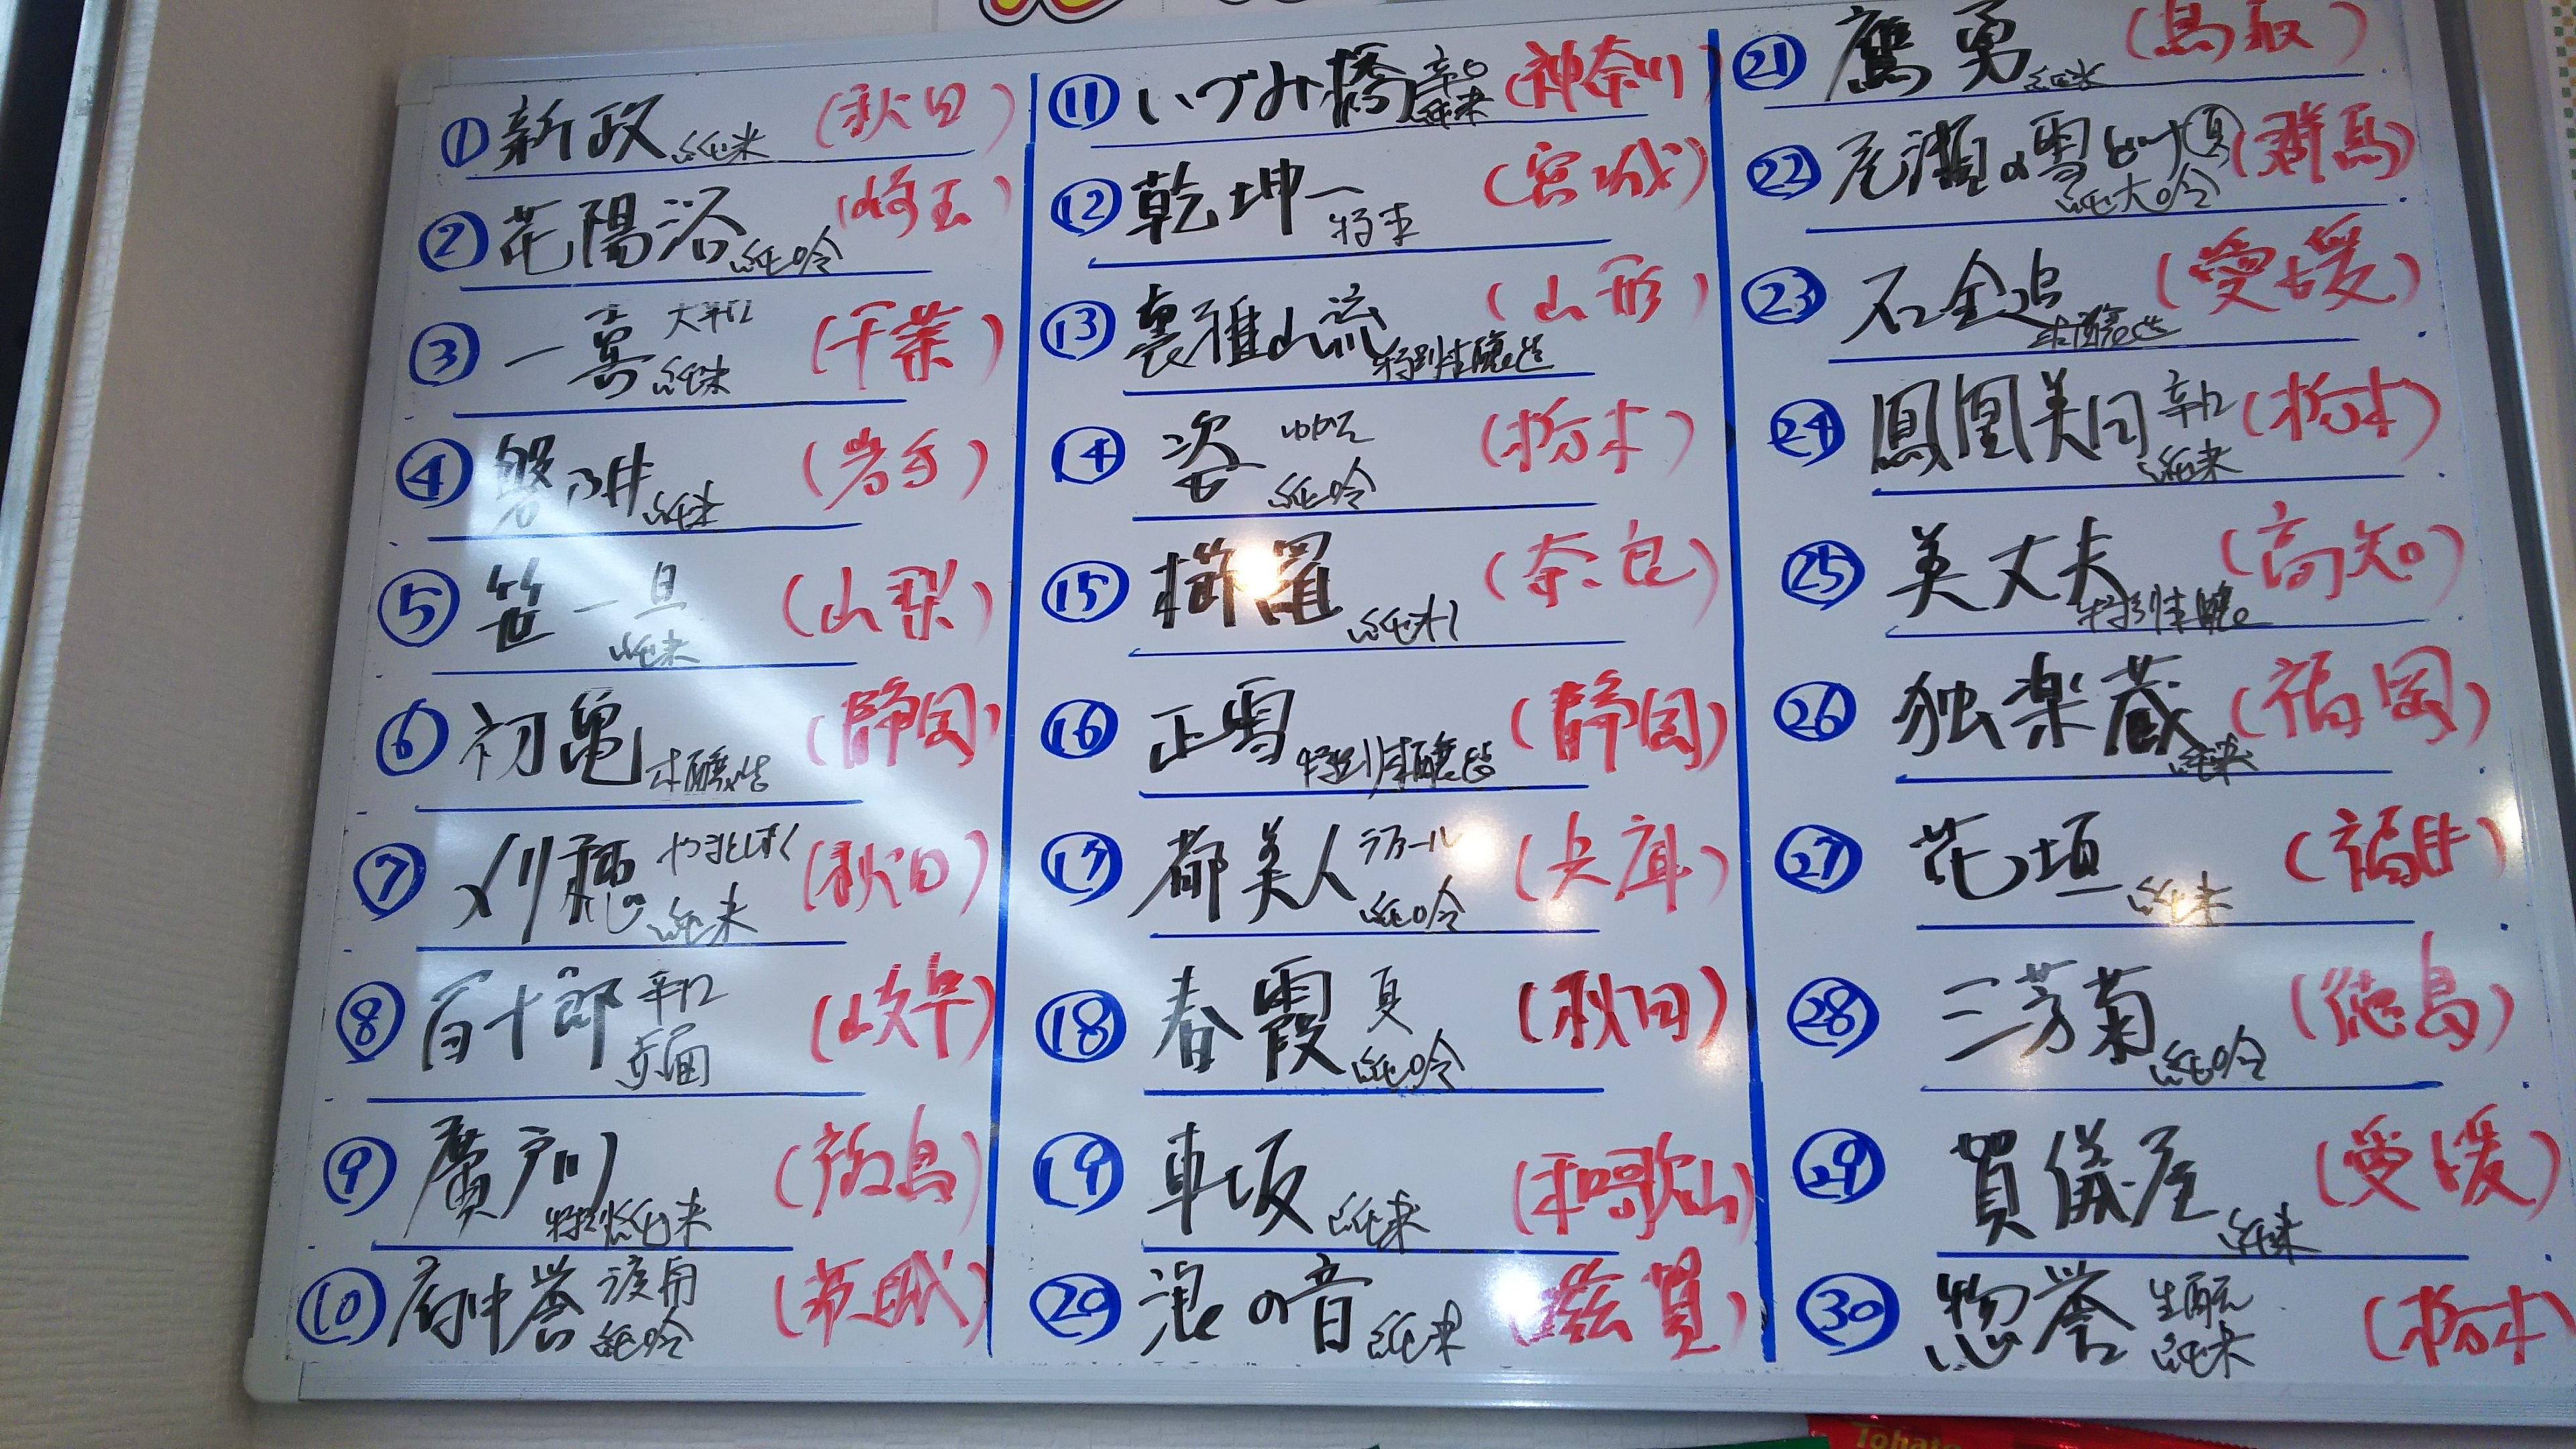 ① 新政 純米 (秋田)
② 花陽浴 純吟 (埼玉)
③ 一喜 大辛口 純米 (千葉)
④ 磐乃井 純米 (岩手)
⑤ 笹一 旦 純米 (山梨)
⑥ 初亀 本醸造 (静岡)
⑦ 刈穂 やまとしずく 純米 (秋田)
⑧ 百十郎 辛口 赤面 (岐阜)
⑨ 廣戸川 特別純米 (福島)
⑩ 府中誉 渡舟 純吟 (茨城)
⑪ いづみ橋 辛口 純米 (神奈川)
⑫ 乾坤一 特本 (宮城)
⑬ 裏雅山流 特別本醸造 (山形)
⑭ 姿 純吟 (栃木)
⑮ 櫛羅 純米 (奈良)
⑯ 正雪 特別本醸造 (静岡)
⑰ 都美人 純吟 (兵庫)
⑱ 春霞 夏 純吟 (秋田)
⑲ 車坂 純米 (和歌山)
⑳ 浪の音 純米 (滋賀)
㉑ 鷹勇 純米 (鳥取)
㉒ 尾瀬の雪どけ 夏 純大吟 (群馬)
㉓ 石鎚 本醸造 (愛媛)
㉔ 鳳凰美田 辛口 純米 (栃木)
㉕ 美丈夫 特別本醸造 (高知)
㉖ 独楽蔵 純米 (福岡)
㉗ 花垣 純米 (福井)
㉘ 三芳菊 純吟 (徳島)
㉙ 賀儀屋 純米 (愛媛)
㉚ 惣誉 生酛 純米 (栃木)
Tohato